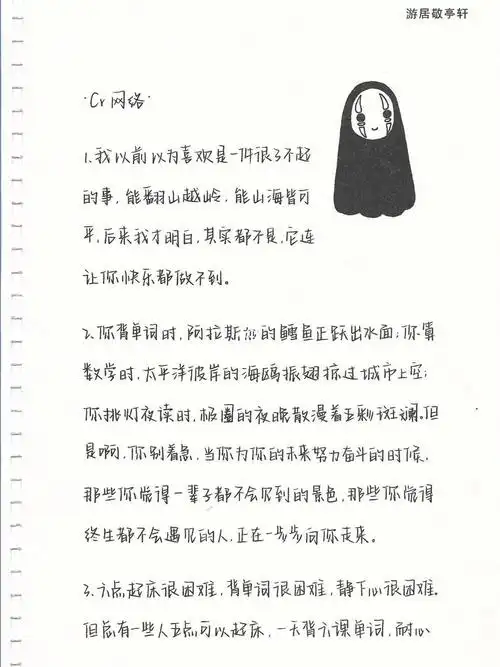 游居敬亭轩
·Cr 网络·
1.我以前以为喜欢是一件很了不起
的事，能翻山越岭，能山海皆可
平，后来我才明白，其实都不是，它连
让你快乐都做不到。
2.你背单词时，阿拉斯加的鳕鱼正跃出水面；你算
数学时，太平洋彼岸的海鸥振翅掠过城市上空；
你挑灯夜读时，极圈的夜晚散漫着五彩斑斓。但
是啊，你别着急，当你为你的未来努力奋斗的时候，
那些你觉得一辈子都不会见到的景色，那些你觉得
终生都不会遇见的人，正在一步步向你走来。
3.六点起床很困难，背单词很困难，静下心很困难。
但总有一些人五点可以起床，一天背六课单词，耐心